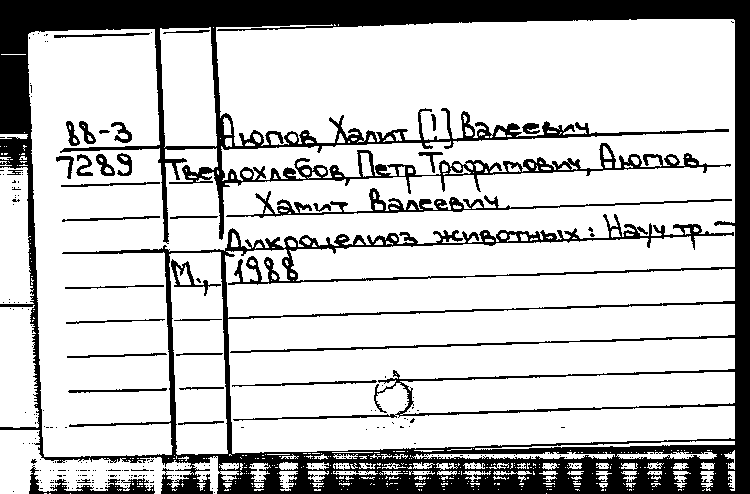 88-3 Аюпов, Халит [!] Валеевич.
7289 Твердохлебов, Петр Трофимович, Аюпов,
Хамит Валеевич.
Дикроцелиоз животных: Науч. тр. —
М., 1988